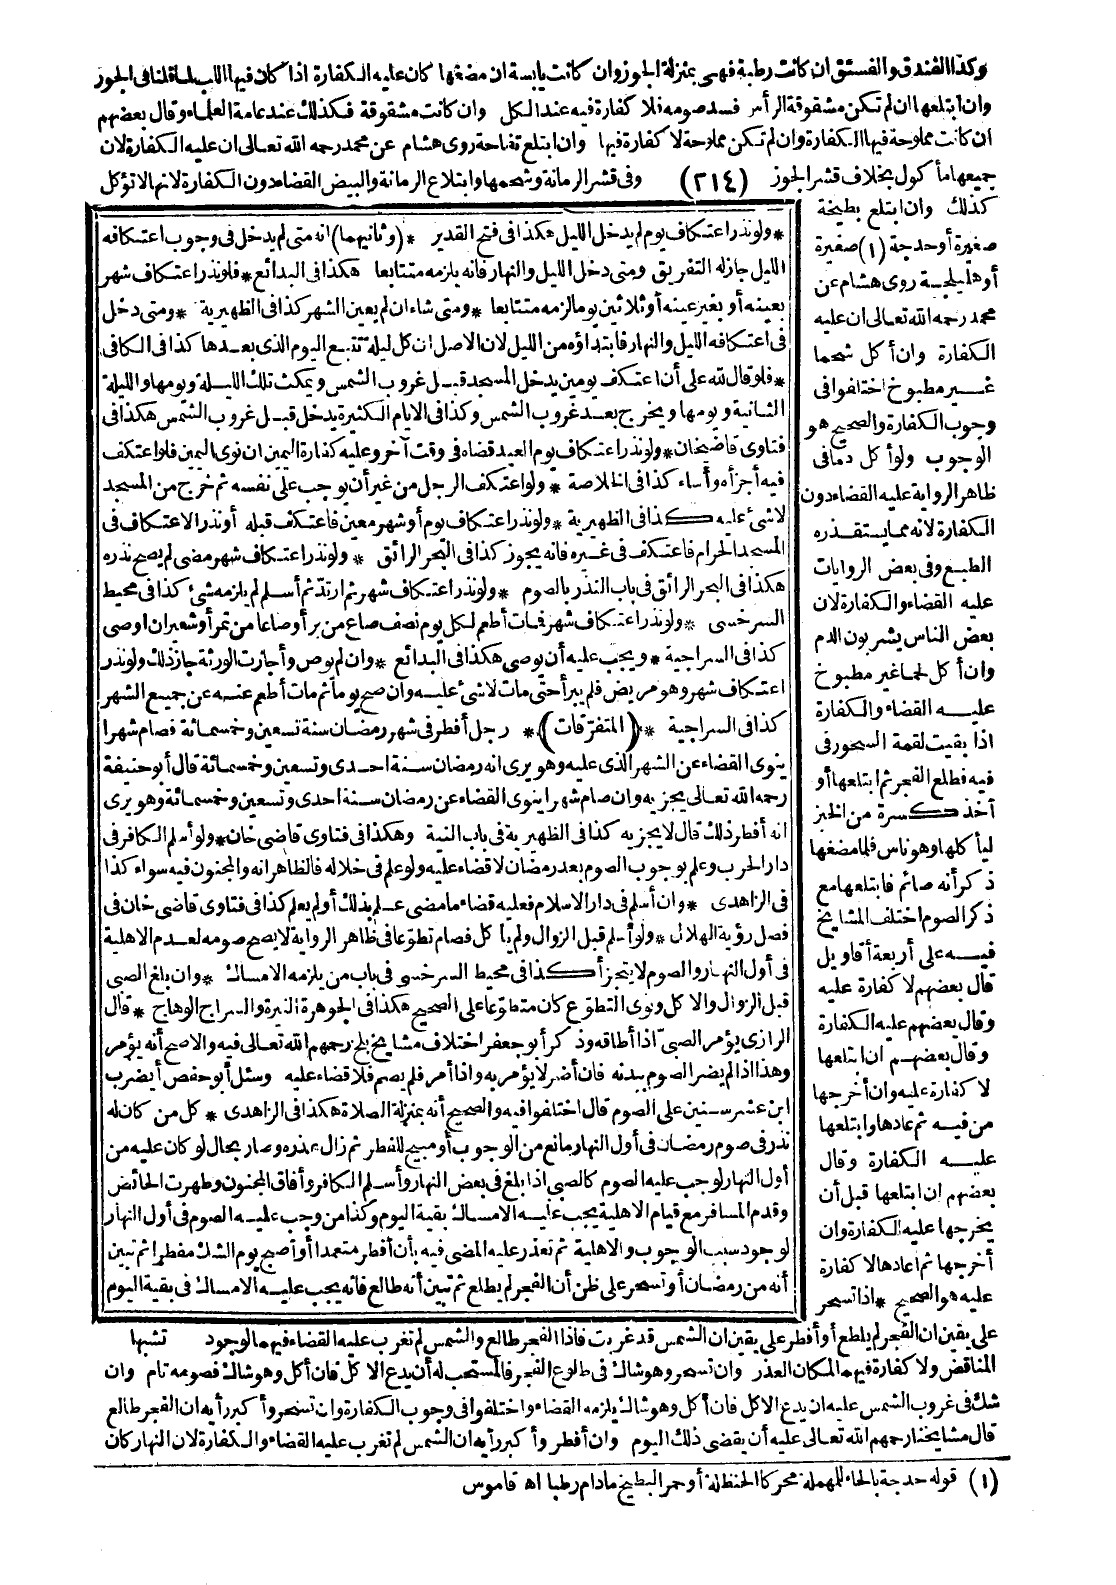 وكذا الفندق والفستق ان كانت رطبة فهى بمنزلة الجوز وان كانت يابسة ان مضغها كان عليه الكفارة اذا كان فيها اللب لما قلنا فى الجوز
وان ابتلعها ان لم تكن مشقوقة الرأس فسد صومه فلا كفارة فيه عند الكل وان كانت مشقوقة فكذلك عند عامة العلماء وقال بعضهم
ان كانت مملوحة فيها الكفارة وان لم تكن مملوحة لا كفارة فيها وان ابتلع تفاحة روى هشام عن محمد رحمه الله تعالى ان عليه الكفارة لان
جميعها مأكول بخلاف قشر الجوز (٢١٤) وفى قشر الرمانة وشحمها وابتلاع الرمانة والبيض القضاء دون الكفارة لانها لا تؤكل
كذلك وان ابتلع بطيخة
صغيرة أو حدجة (١) صغيرة
أو هليلجة روى هشام عن
محمد رحمه الله تعالى ان عليه
الكفارة وان أكل شحما
غير مطبوخ اختلفوا فى
وجوب الكفارة والصحيح هو
الوجوب ولو أكل دما فى
ظاهر الرواية عليه القضاء دون
الكفارة لانه مما يستقذره
الطبع وفى بعض الروايات
عليه القضاء والكفارة لان
بعض الناس يشربون الدم
وان أكل لحما غير مطبوخ
عليه القضاء والكفارة
اذا بقيت لقمة السحور فى
فيه فطلع الفجر ثم ابتلعها أو
أخذ كسرة من الخبز
ليأكلها وهو ناس فلما مضغها
ذكر أنه صائم فابتلعها مع
ذكر الصوم اختلف المشايخ
فيه على أربعة أقاويل
قال بعضهم لا كفارة عليه
وقال بعضهم عليه الكفارة
وقال بعضهم ان ابتلعها
لا كفارة عليه وان أخرجها
من فيه ثم عادها وابتلعها
عليه الكفارة وقال
بعضهم ان ابتلعها قبل أن
يخرجها عليه الكفارة وان
أخرجها ثم اعادها لا كفارة
عليه هو الصحيح * اذا تسحر
على يقين ان الفجر لم يطلع أو أفطر على يقين ان الشمس قد غربت فاذا الفجر طالع والشمس لم تغرب عليه القضاء فيهما لوجود تشبها
المناقض ولا كفارة فيهما لمكان العذر وان تسحر وهو شاك فى طلوع الفجر فالمستحب له أن يدع الاكل فان أكل وهو شاك فصومه تام وان
شك فى غروب الشمس عليه ان يدع الاكل فان أكل وهو شاك يلزمه القضاء واختلفوا فى وجوب الكفارة وان تسحر وأكبر رأيه ان الفجر طالع
قال مشايخنا رحمهم الله تعالى عليه أن يقضى ذلك اليوم وان أفطر وأكبر رأيه ان الشمس لم تغرب عليه القضاء والكفارة لان النهار كان
* ولو نذر اعتكاف يوم لم يدخل الليل هكذا فى فتح القدير * (وثانيهما) انه متى لم يدخل فى وجوب اعتكافه
الليل جاز له التفريق ومتى دخل الليل والنهار فانه يلزمه متتابعا هكذا فى البدائع * فلو نذر اعتكاف شهر
بعينه أو بغير عينه أو ثلاثين يوما لزمه متتابعا * ومتى شاء ان لم يعين الشهر كذا فى الظهيرية * ومتى دخل
فى اعتكافه الليل والنهار فابتداؤه من الليل لان الاصل ان كل ليلة تتبع اليوم الذى بعدها كذا فى الكافى
* فلو قال لله على أن اعتكف يومين يدخل المسجد قبل غروب الشمس ويمكث تلك الليلة ويومها والليلة
الثانية ويومها ويخرج بعد غروب الشمس وكذا فى الايام الكثيرة يدخل قبل غروب الشمس هكذا فى
فتاوى قاضيخان * ولو نذر اعتكاف يوم العيد قضاه فى وقت آخر وعليه كفارة اليمين ان نوى اليمين فلو اعتكف
فيه أجزأه وأساء كذا فى الخلاصة * ولو اعتكف الرجل من غير أن يوجب على نفسه ثم خرج من المسجد
لا شئ عليه كذا فى الظهيرية * ولو نذر اعتكاف يوم أو شهر معين فاعتكف قبله أو نذر الاعتكاف فى
المسجد الحرام فاعتكف فى غيره فانه يجوز كذا فى البحر الرائق * ولو نذر اعتكاف شهر مضى لم يصح نذره
هكذا فى البحر الرائق فى باب النذر بالصوم * ولو نذر اعتكاف شهر ثم ارتد ثم أسلم لم يلزمه شئ كذا فى محيط
السرخسى * ولو نذر اعتكاف شهر فمات أطعم لكل يوم نصف صاع من بر أو صاعا من تمر أو شعير ان اوصى
كذا فى السراجية * ويجب عليه أن يوصى هكذا فى البدائع * وان لم يوص وأجازت الورثة جاز ذلك ولو نذر
اعتكاف شهر وهو مريض فلم يبرأ حتى مات لا شئ عليه وان صح يوما ثم مات أطعم عنه عن جميع الشهر
كذا فى السراجية * (المتفرقات) * رجل أفطر فى شهر رمضان سنة تسعين وخمسمائة فصام شهرا
ينوى القضاء عن الشهر الذى عليه وهو يرى انه رمضان سنة احدى وتسعين وخمسمائة قال أبو حنيفة
رحمه الله تعالى يجزيه وان صام شهرا ينوى القضاء عن رمضان سنة احدى وتسعين وخمسمائة وهو يرى
انه أفطر ذلك قال لا يجزيه كذا فى الظهيرية فى باب النية وهكذا فى فتاوى قاضى خان * ولو أسلم الكافر فى
دار الحرب وعلم بوجوب الصوم بعد رمضان لا قضاء عليه ولو علم فى خلاله فالظاهر انه والمجنون فيه سواء كذا
فى الزاهدى * وان أسلم فى دار الاسلام فعليه قضاء ما مضى علم بذلك أو لم يعلم كذا فى فتاوى قاضى خان فى
فصل رؤية الهلال * ولو أسلم قبل الزوال ولم يأكل فصام تطوعا فى ظاهر الرواية لا يصح صومه لعدم الاهلية
فى أول النهار والصوم لا يتجزأ كذا فى محيط السرخسى فى باب من يلزمه الامساك * وان بلغ الصبى
قبل الزوال والاكل ونوى التطوع كان متطوعا على الصحيح هكذا فى الجوهرة النيرة والسراج الوهاج * قال
الرازى يؤمر الصبى اذا أطاقه وذكر أبو جعفر اختلاف مشايخ بلخ رحمهم الله تعالى فيه والاصح أنه يؤمر
وهذا اذا لم يضر الصوم ببدنه فان أضر لا يؤمر به واذا أمر فلم يصم فلا قضاء عليه وسئل أبو حفص أيضرب
ابن عشر سنين على الصوم قال اختلفوا فيه والصحيح أنه بمنزلة الصلاة هكذا فى الزاهدى * كل من كان له
عذر فى صوم رمضان فى أول النهار مانع من الوجوب أو مبيح للفطر ثم زال عذره وصار بحال لو كان عليه من
أول النهار لوجب عليه الصوم كالصبى اذا بلغ فى بعض النهار وأسلم الكافر وأفاق المجنون وطهرت الحائض
وقدم المسافر مع قيام الاهلية يجب عليه الامساك بقية اليوم وكذا من وجب عليه الصوم فى أول النهار
لوجود سبب الوجوب والاهلية ثم تعذر عليه المضى فيه بأن أفطر متعمدا أو أصبح يوم الشك مفطرا ثم تبين
أنه من رمضان أو تسحر على ظن أن الفجر لم يطلع ثم تبين أنه طالع فانه يجب عليه الامساك فى بقية اليوم
(١) قوله حدجة بالحاء المهملة محركا الحنظلة أو حمر البطيخ مادام رطبا اه قاموس